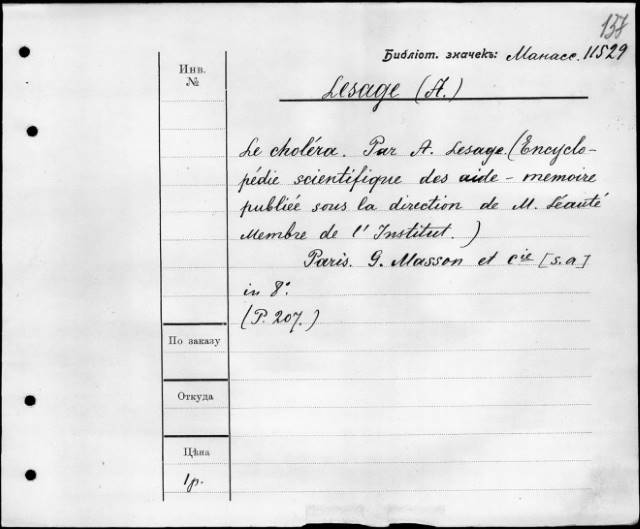 157
Библіот. значекъ: Манасс. 11529
Инв.
№
Lesage (A.)
Le choléra. Par A. Lesage. (Encyclo-
pédie scientifique des aide-memoire
publiée sous la direction de M. Léauté
Membre de l'Institut.)
Paris. G. Masson et cie [s.a]
in 8°.
(P. 207.)
По заказу
Откуда
Цѣна
1р.